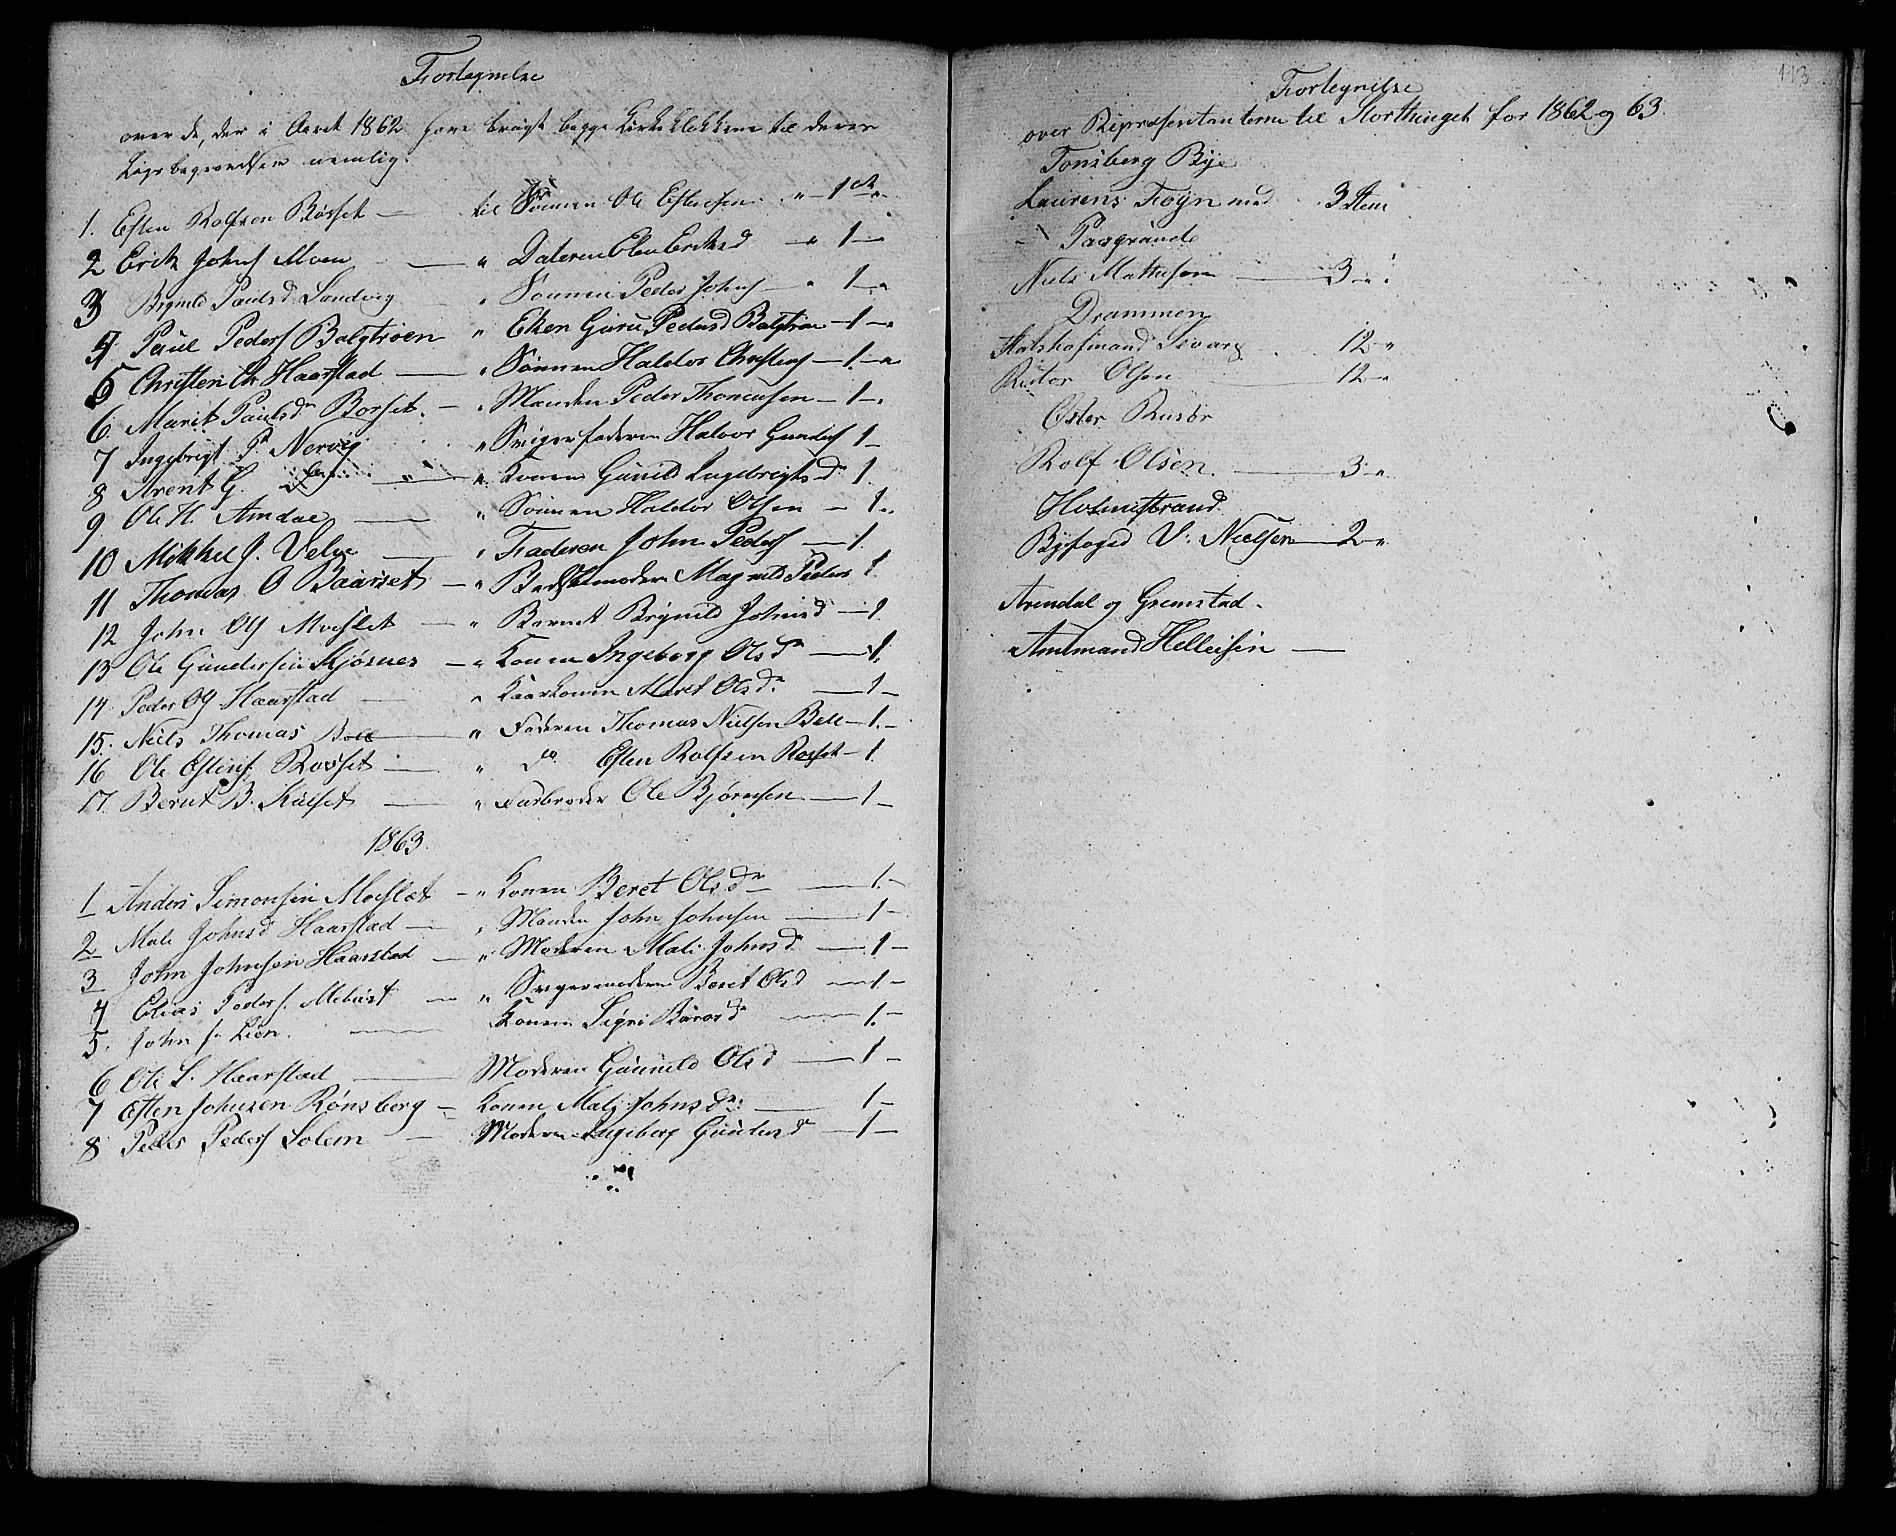 Fortegnelse
over de, der i Aaret 1862 have brugt begge Kirkeklokkene til deres
Ligs begravelser nemlig:
1. Esten Rolfsen Røsset — til Sønnen Ole Estensen " 1
2 Erik Johns Moen — " Dateren Elen Eriksd — " 1 —
3 Brynild Paulsd Sandvig " Sønnen Peder Johns — " 1 — "
4 Paul Peders Balgtrøen " Eken Guru Pedersd Balgtrøen — 1 — "
5 Christen Ch Haarstad — " Sønnen Haldor Christens — 1. — "
6. Marit Paulsdr Borset. — " Manden Peder Thomessen — 1 — "
7 Ingebrigt P. Nervig " Svigerfaderen Halvor Gunders 1 —
8 Arent G. — " Konen Gunild Ingebrigtsdr 1.
9. Ole H. Amdal — " Sønnen Haldor Olsen — 1 "
10 Mikkel J. Velve — " Faderen John Peders — 1.
11 Thomas O Baarset — " Bedstemoderen Magnild Peders 1.
12 John Ols Moeslet — " Barnet Brynild Johnsd — 1
13 Ole Gundersen Kjøsnes — " Konen Ingeborg Olsdr — 1.
14. Peder Ols Haarstad — " Kaarkonen Maret Olsdr. — 1 —
15. Niels Thomas Bell " Faderen Thomas Nielsen Bell — 1. —
16 Ole Estens Røsset — " do Esten Rolfsen Røsset — 1.
17. Bernt B. Kulset — " Farbroder Ole Bjørnsen — 1 —
1863.
1 Anders Simonsen Moeslet — " Konen Beret Olsdr — 1. —
2 Mali Johnsd Haarstad — " Manden John Johnsen — 1 —
3 John Johnsen Haarstad — " Moderen Mali Johnsdr — 1 —
4 Elias Peders. Mebust — " Svigermoderen Beret Olsd — 1 —
5. John J. Lien. — Konen Sigri Baarsdr — 1. —
6 Ole L. Haarstad — Moderen Gunild Olsd — 1 —
7 Esten Johnsen Rønsberg — Konen Mali Johnsdr. — 1 —
8 Peder Peders Solem — Moderen Ingeborg Gundersd — 1 —
113
Fortegnelse
over Repræsentanterne til Storthinget for 1862 og 63.
Tonsberg Bye
Laurens Foyn med 3 Stem
Porsgrund
Niels Mathesen — 3 — "
Drammen
12 — "
Rektor Olsen — 12 — "
Øster Riisør
Rolf Olsen. — 3 — "
Holmestrand
Byfoged V. Nielsen — 2 — "
Arendal og Gremstad.
Amtmand Hellesen —